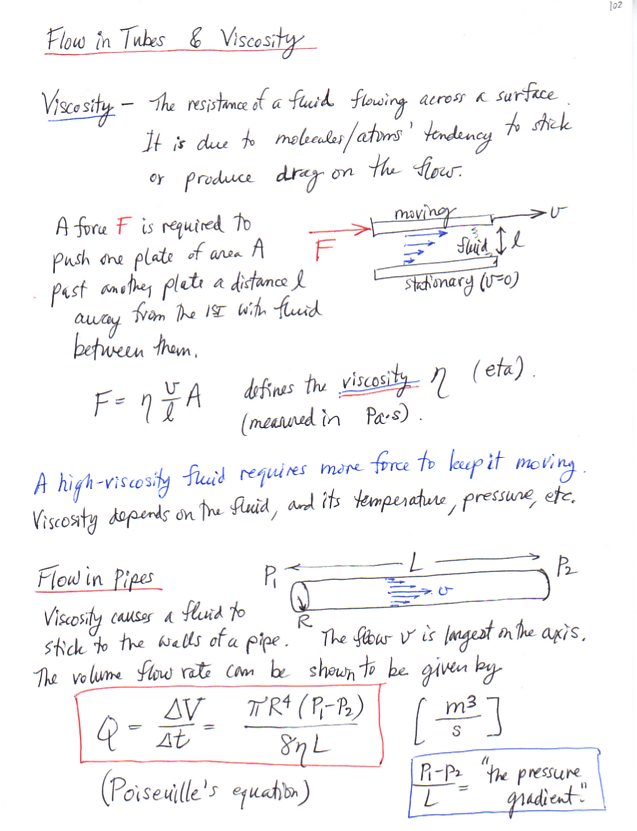 102
Flow in Tubes & Viscosity
Viscosity – The resistance of a fluid flowing across a surface.
It is due to molecules/atoms' tendency to stick
or produce drag on the flow.
A force F is required to
push one plate of area A
past another plate a distance l
away from the 1st with fluid
between them.
moving
v
F
fluid
l
stationary (v=0)
F = η v/l A
defines the viscosity η (eta).
(measured in Pa·s).
A high-viscosity fluid requires more force to keep it moving.
Viscosity depends on the fluid, and its temperature, pressure, etc.
Flow in Pipes
P₁
L
P₂
R
v
Viscosity causes a fluid to
stick to the walls of a pipe. The flow v is largest on the axis.
The volume flow rate can be shown to be given by
Q = ΔV/Δt = πR⁴(P₁-P₂)/8ηL [m³/s]
(Poiseuille's equation)
P₁-P₂/L = "the pressure
gradient."